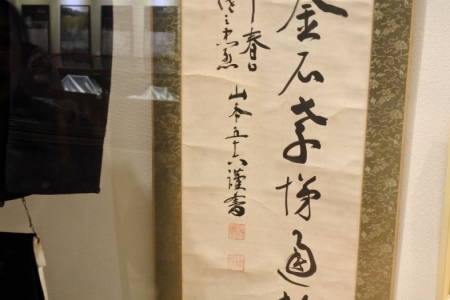 金石孝悌通
春日
山本五十六謹書